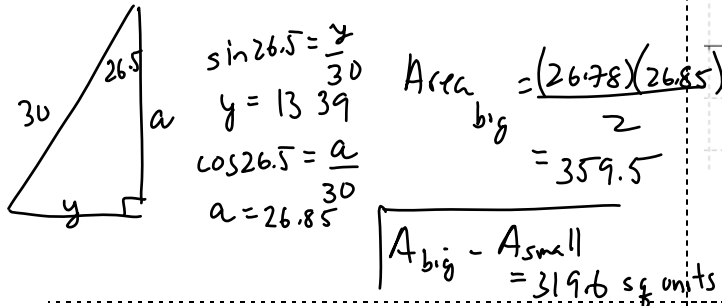 26.5
30
a
y
sin26.5 = y/30
y = 13 39
cos26.5 = a/30
a = 26.85
Area big = (26.78)(26.85)/2
= 359.5
A big - A small
= 319.6 sq units